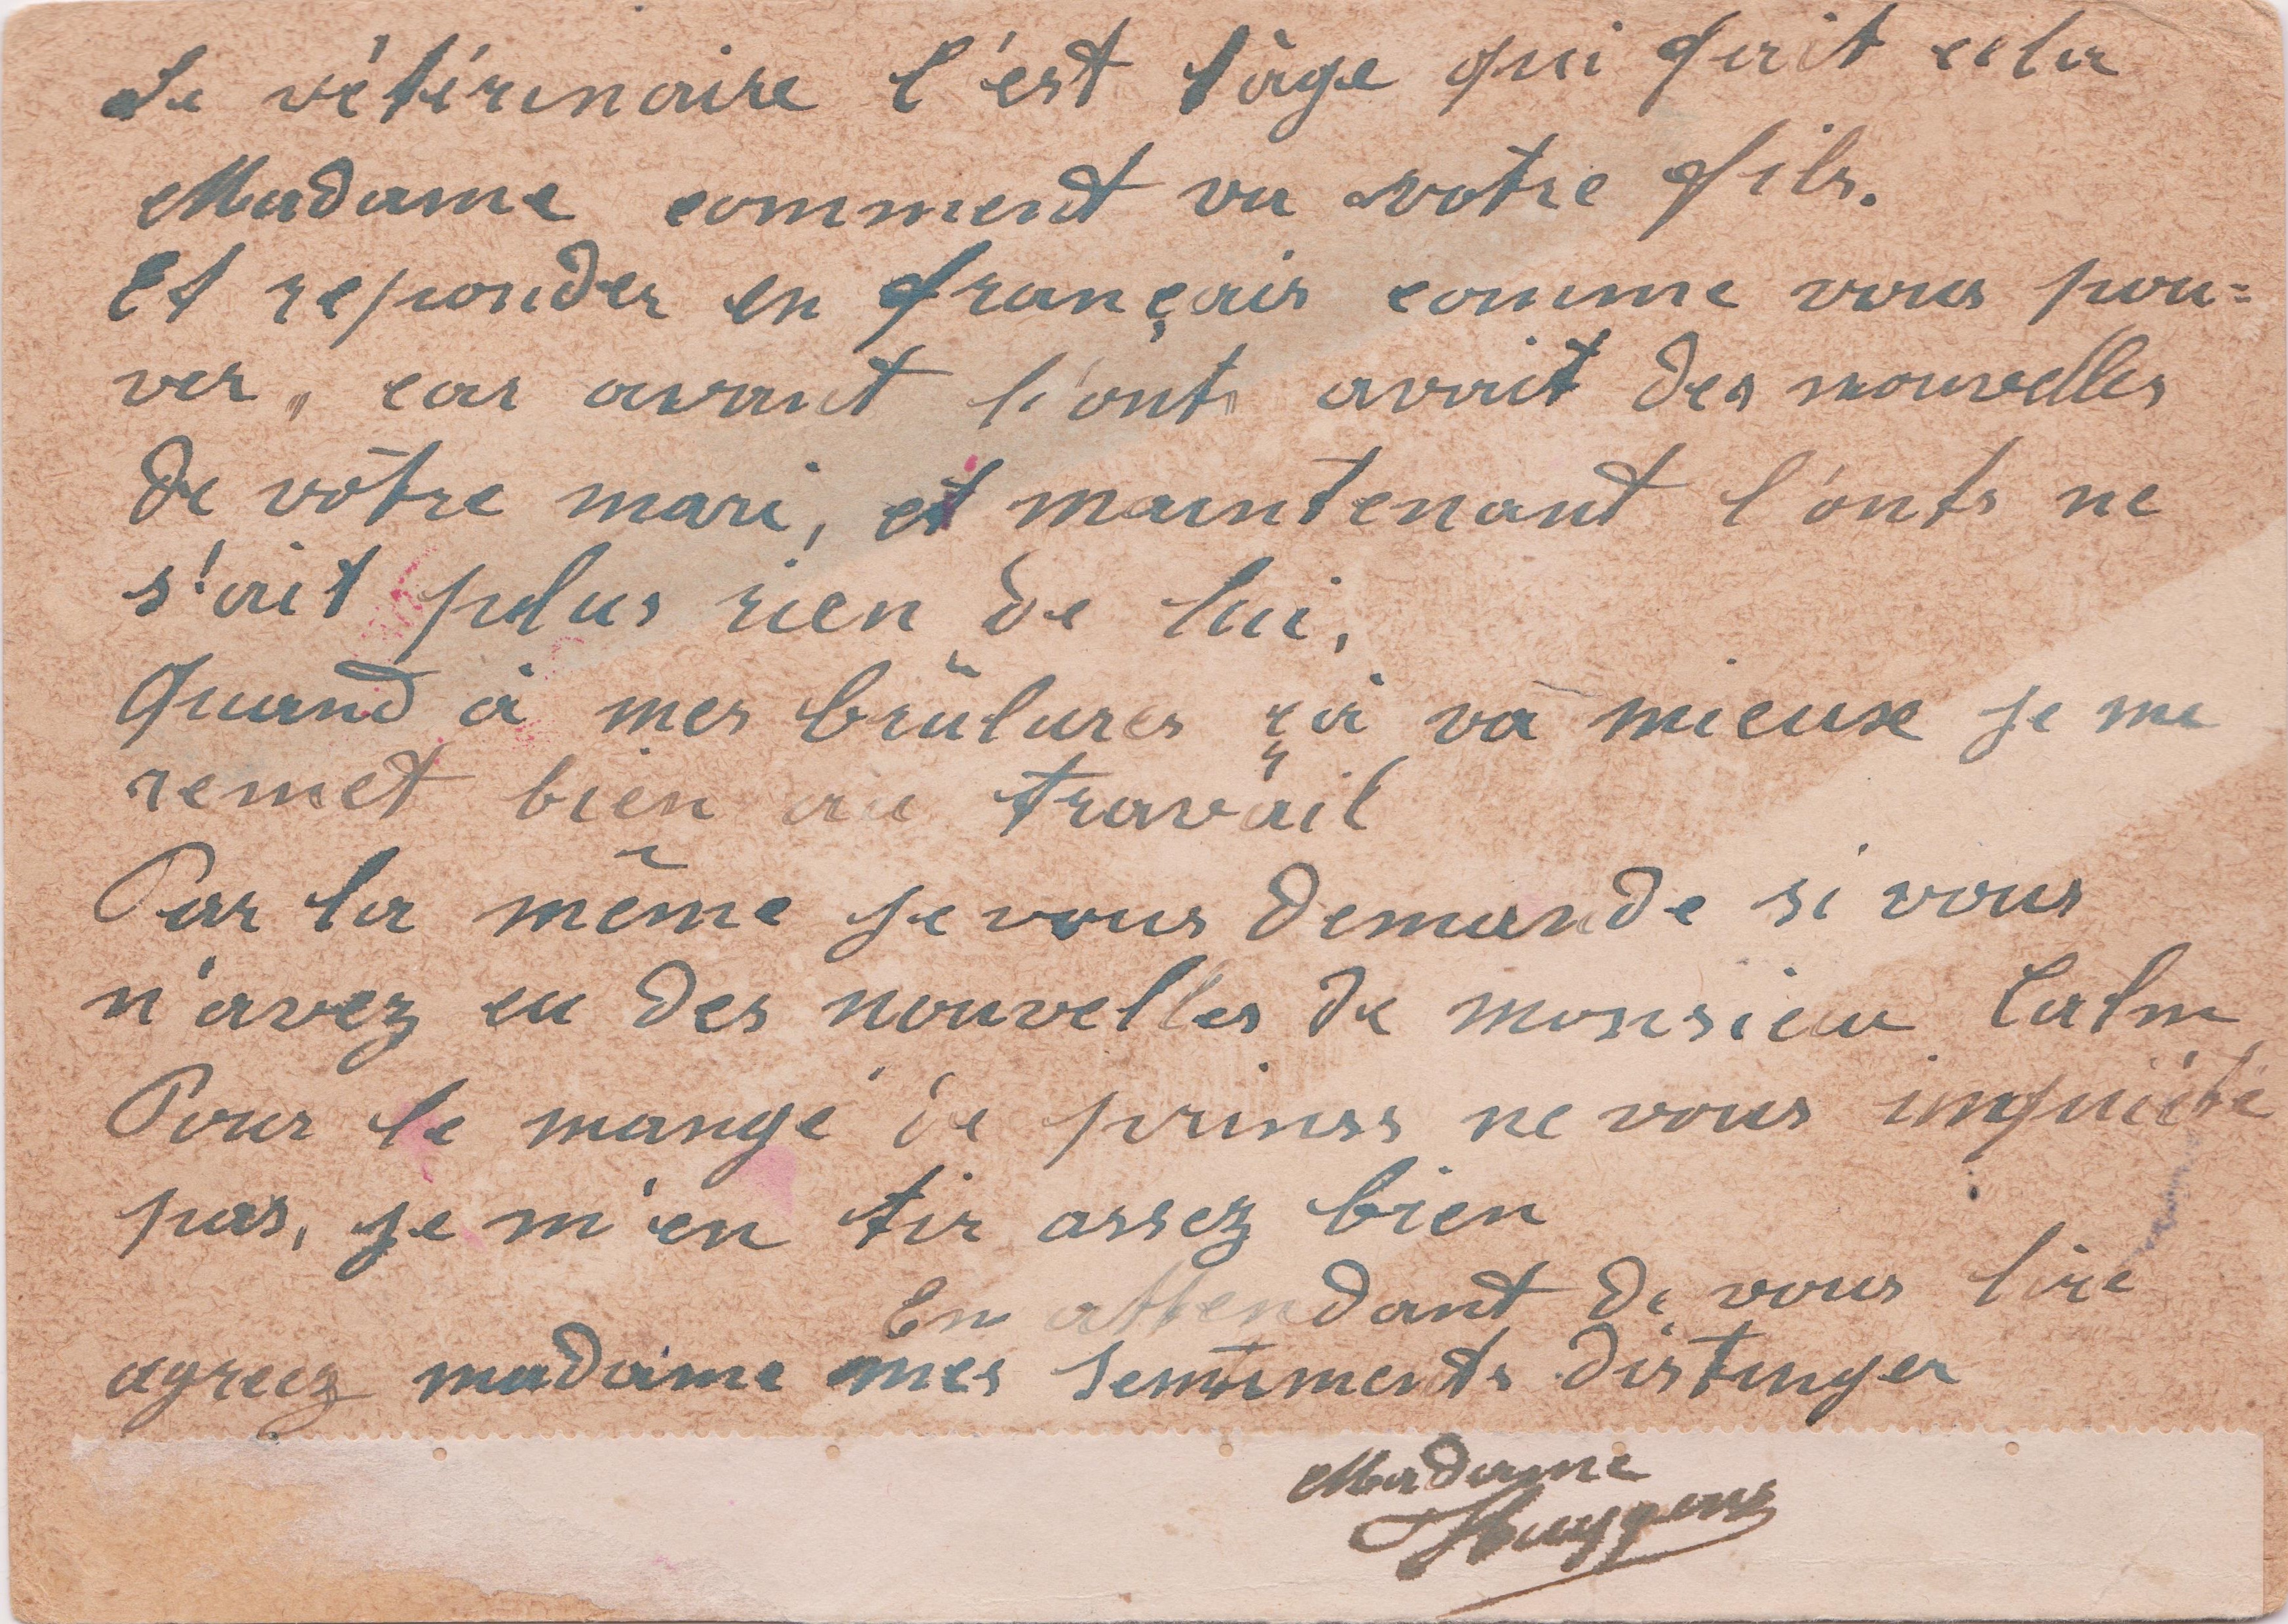 Le vétérinaire c'est l'âge qui fait cela
Madame comment va votre fils.
Et reponder en français comme vous pou=
ver, car avant l'onts avait des nouvelles
de vôtre mari, et maintenant l'onts ne
s'ait plus rien de lui,
Quand à mes brûlures çà và mieux je me
remet bien au travail
Par la même je vous demande si vous
n'avez eu des nouvelles de monsieur
Pour le mangé de prinss ne vous inquiété
pas, je m'en tir assez bien
En attendant de vous lire
agreez madame mes sentiments distinger
Madame
Huygens